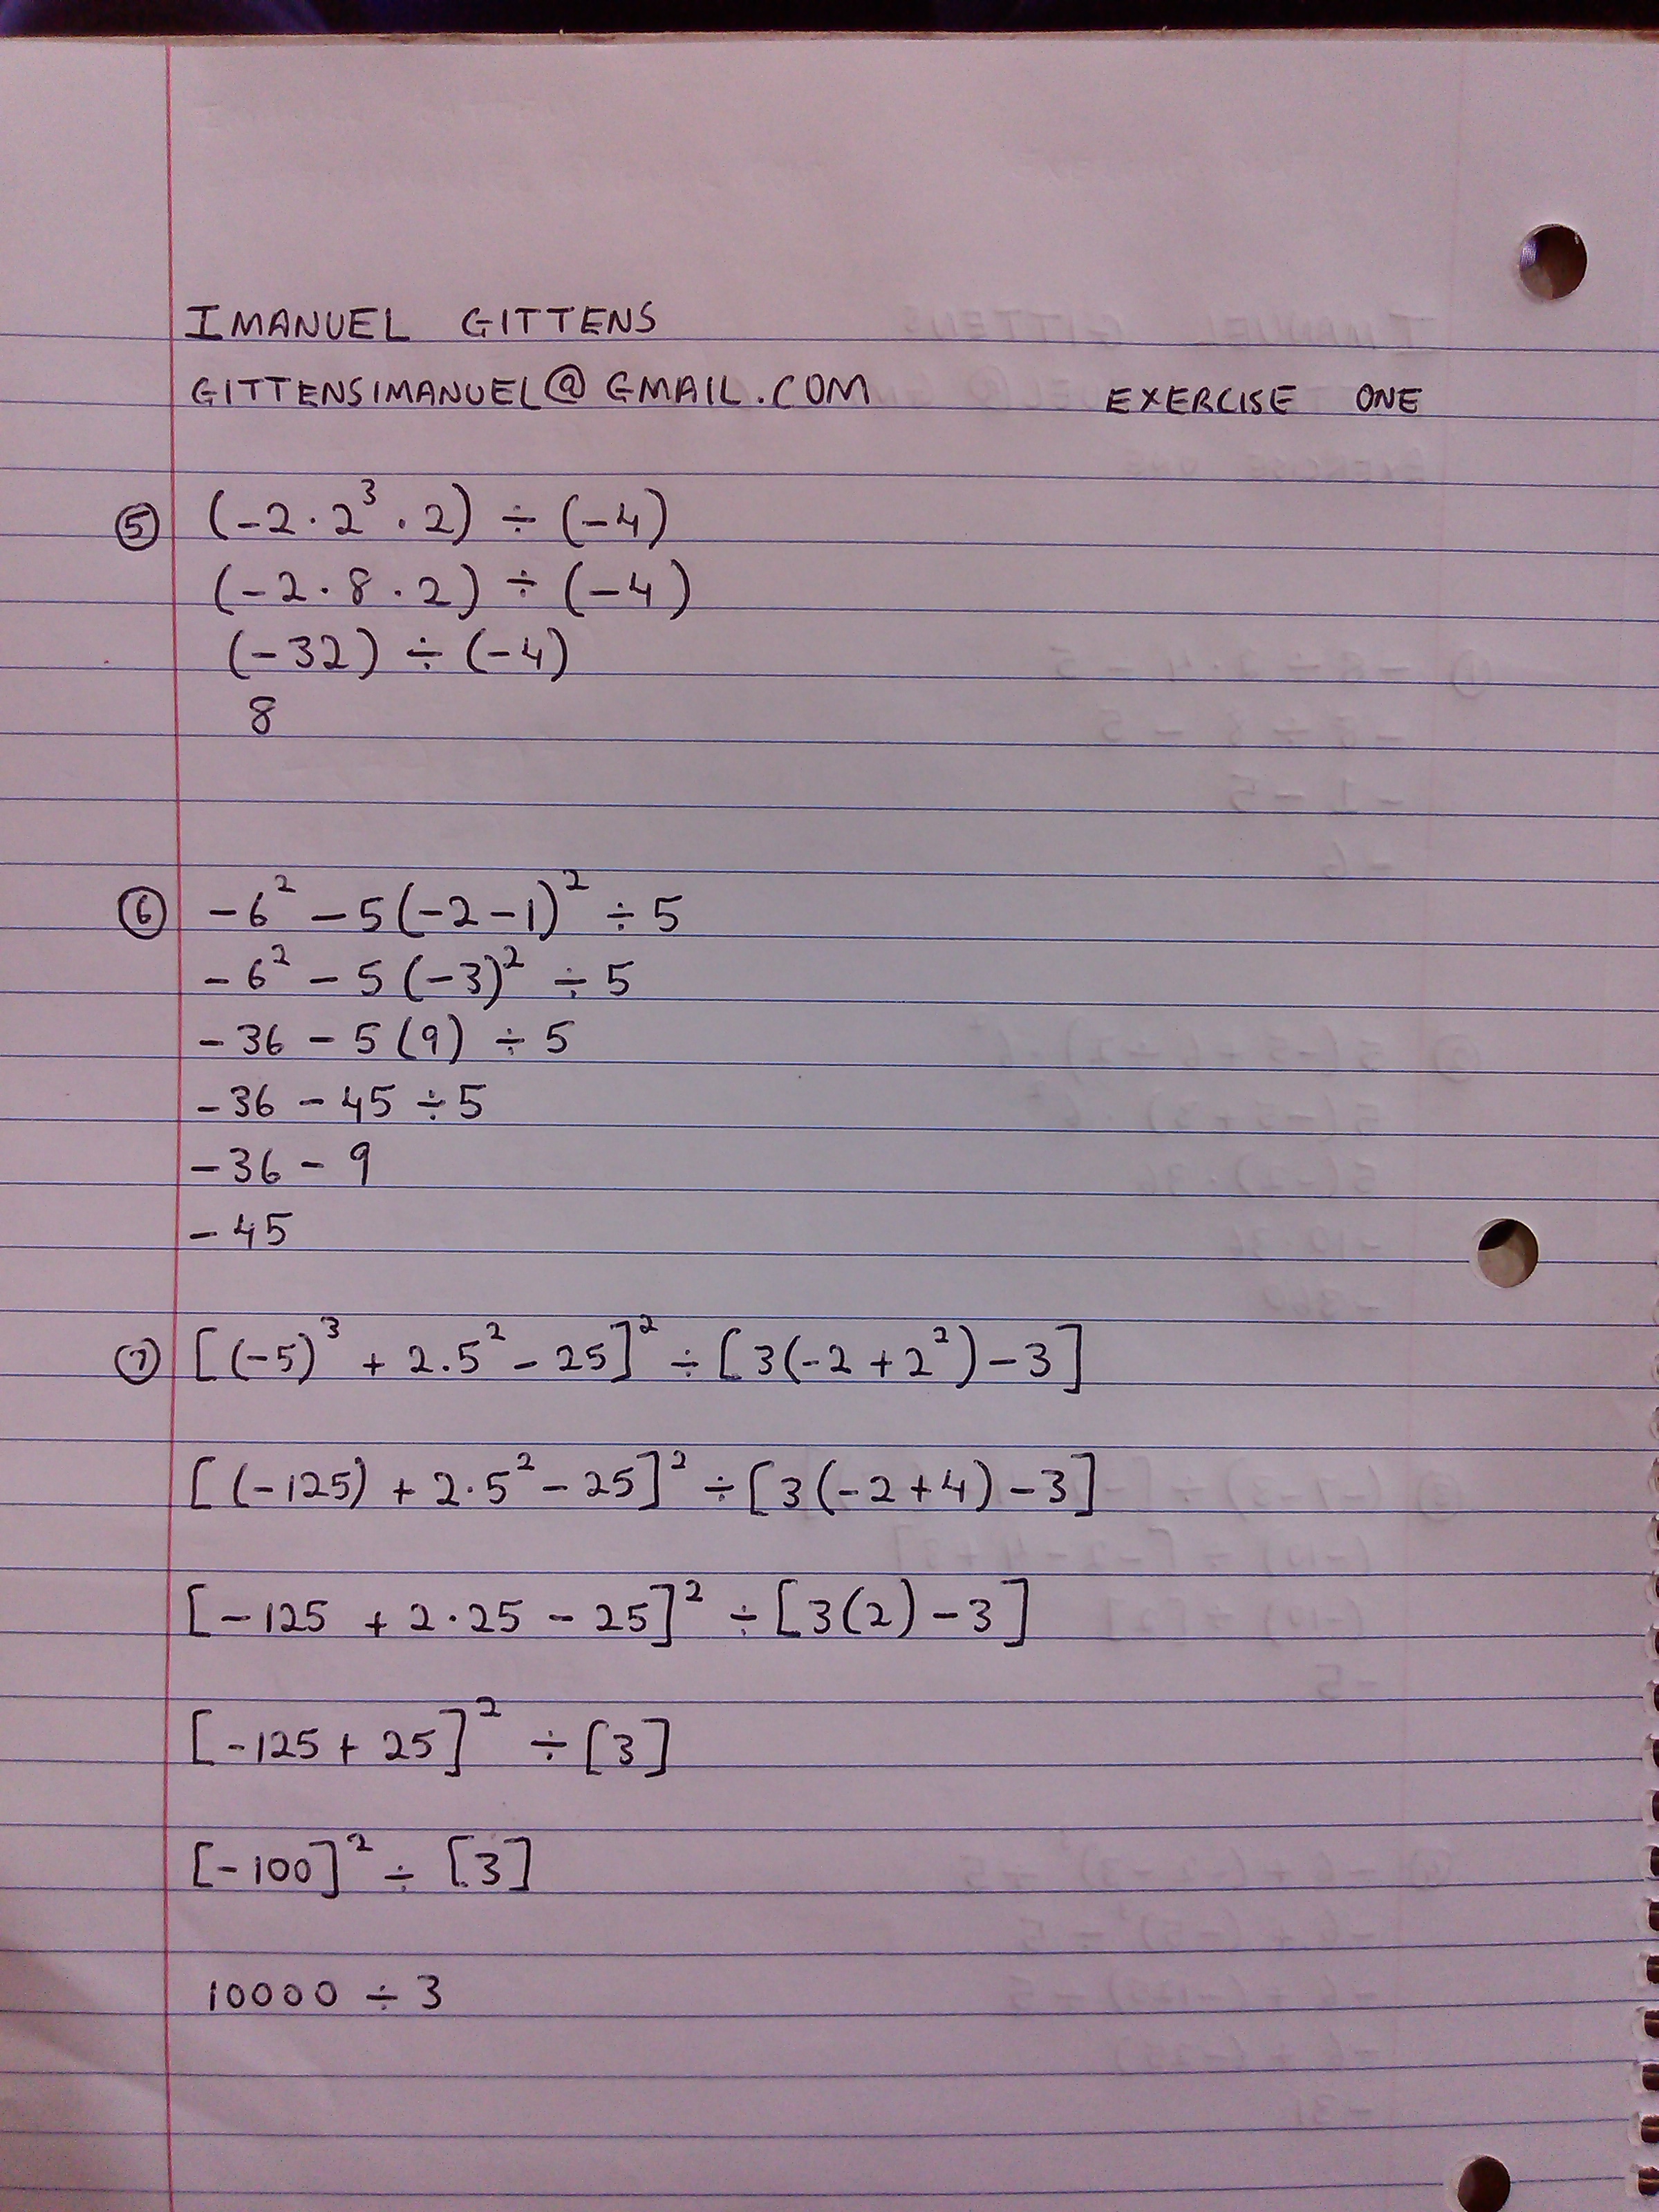 IMANUEL GITTENS
GITTENSIMANUEL@GMAIL.COM EXERCISE ONE
⑤ (-2·2³·2) ÷ (-4)
(-2·8·2) ÷ (-4)
(-32) ÷ (-4)
8
⑥ -6² - 5(-2-1)² ÷ 5
-6² - 5(-3)² ÷ 5
-36 - 5(9) ÷ 5
-36 - 45 ÷ 5
-36 - 9
-45
⑦ [(-5)³ + 2·5² - 25]² ÷ [3(-2+2²)-3]
[(-125) + 2·5² - 25]² ÷ [3(-2+4)-3]
[-125 + 2·25 - 25]² ÷ [3(2)-3]
[-125 + 25]² ÷ [3]
[-100]² ÷ [3]
10000 ÷ 3